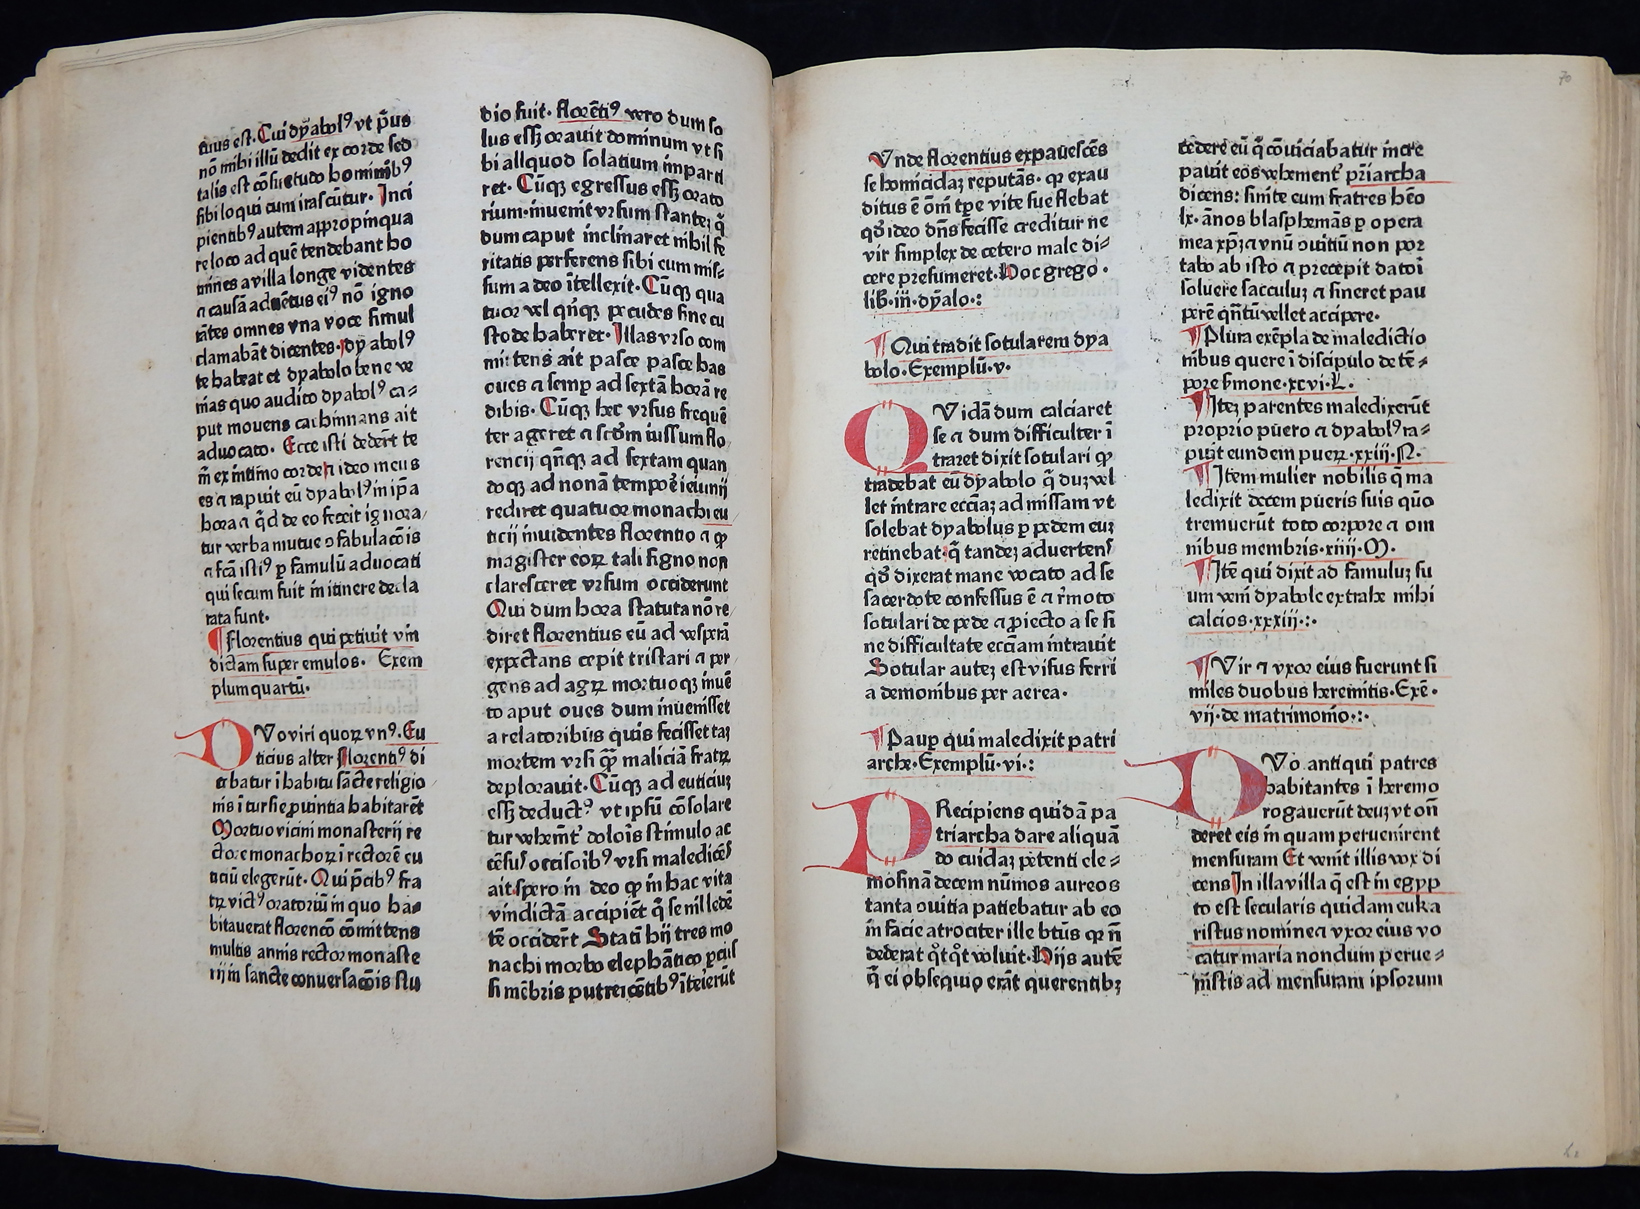 tiuus est. Cui dyabolꝰ vt pͥus
nō mihi illū dedit ex corde sed
talis est cōsuetudo hominibꝰ
sibi loqui cum irascūtur. Inci
pientibꝰ autem appropinqua
re loco ad quē tendebant ho
mines a villa longe videntes
⁊ causā aduētus eiꝰ nō igno
rātes omnes vna voce simul
clamabāt dicentes. dyabolꝰ
te habeat et dyabolo bene ve
nias quo audito dyabolꝰ ca⸗
put mouens cachinnans ait
aduocato. Ecce isti dedert̄ te
m̄ ex intimo corde ⁊ ideo meus
es ⁊ rapuit eū dyabolꝰ in ip̄a
hora ⁊ qͥd de eo fecit ignora⸗
tur verba mutue ↄfabulacōis
⁊ fcā istiꝰ ꝑ famulū aduocati
qui secum fuit in itinere decla
rata sunt.
¶ Florentius qui petiuit vin
dictam super emulos. Exem
plum quartū.
DVo viri quoꝝ vnꝰ. Eu
ticius alter Florentiꝰ di
cebatur ī habitu sācte religio
nis ī tursie ꝓuintia habitaret̄
Mortuo vicini monasterij re
ctore monachoꝝ ī rectorē eu
ticiū elegerūt. Qui pͨcibꝰ fra
tꝝ victꝰ oratoriū in quo ha⸗
bitauerat florenco cōmittens
multis annis rector monaste
rij in sancte conuersacōis stu
dio fuit. florētiꝰ vero dum so
lus essꝫ orauit dominum vt si
bi aliquod solatium imparti
ret. Cūqꝫ egressus essꝫ orato
rium. inuenit vrsum stanteꝫ q̄
dum caput inclinaret nihil fe
ritatis perferens sibi cum mis⸗
sum a deo ītellexit. Cūqꝫ qua
tuor vel qn̄qꝫ pecudes sine cu
stode haberet. Illas vrso com
mittens ait pasce pasce has
oues ⁊ semꝑ ad sextā horā re
dibis. Cūqꝫ hec vrsus frequē
ter ageret ⁊ scdm̄ iussum flo
rencij qn̄qꝫ ad sextam quan
doqꝫ ad nonā tempoꝝ̄ ieiunij
rediret quatuor monachi eu
ticij inuidentes florentio ⁊ ꝙ
magister eoꝝ tali signo non
claresceret vrsum occiderunt
Qui dum hora statuta nō re
diret florentius eū ad vesperā
expectans cepit tristari ⁊ per
gens ad agꝝ mortuoqꝫ inuē
to aput oues dum inuenisset
a relatoribus quis fecisset taꝫ
mortem vrsi qꝫ maliciā fratꝝ
deplorauit. Cūqꝫ ad euticiuꝫ
essꝫ deductꝰ vt ipsū cōsolare
tur vehemt̄ doloris stimulo ac
cēsuꝰ occisoribꝰ vrsi maledicēs
ait spero in deo ꝙ in hac vita
vindictā accipiēt q̄ se nil lede
tē occidert̄ Statī hij tres mo
nachi morbo elephātico ꝑcussi
si mēbris putrescētibꝰ īterierūt
Vnde florentius expauescēs
se homicidaꝫ reputās. qꝛ exau
ditus ē om̄ tp̄e vite sue flebat
qd̓ ideo dn̄s fecisse creditur ne
vir simplex de cetero male di⸗
cere presumeret. Hoc grego.
lib̓. iii. dyalo.:
¶ Qui tradit sotularem dya
bolo. Exemplū. v.
QVidā dum calciaret
se ⁊ dum difficulter ī
traret dixit sotulari ꝙ
tradebat eū dyabolo q̄ duꝫ vel
let intrare ecciaꝫ ad missam vt
solebat dyabolus ꝑ pedem euꝫ
retinebat. q̄ tandeꝫ aduertens
qd̓ dixerat mane vocato ad se
sacerdote confessus ē ⁊ r̄moto
sotulari de pede ⁊ ꝓiecto a se si
ne difficultate ecciam intrauit
Sotular auteꝫ est visus ferri
a demonibus per aerea.
¶ Pauꝑ qui maledixit patri
arche. Exemplū. vi.:
PRecipiens quidā pa
triarcha dare aliquā
do cuidaꝫ petenti ele⸗
mosinā decem nūmos aureos
tanta ouitia patiebatur ab eo
in facie atrociter ille btūs qꝛ n̄
dederat qͦtqͦt voluit. Hijs autē
q̄ ei obsequio erāt querentibꝫ
cedere eū q̄ cōuiciabatur incre
pauit eos vehement̄ pr̄iarcha
dicens: sinite eum fratres hēo
lx. ānos blasphemās ꝑ opera
mea xp̄ꝫ ⁊ vnū ouitiū non por
tabo ab isto ⁊ precepit datoī
soluere sacculuꝫ ⁊ sineret pau
perē qn̄tū vellet accipere.
¶ Plura exēpla de maledictio
nibus quere ī discipulo de tē⸗
pore s̄mone. xcvi. L.
¶ Iteꝫ parentes maledixerūt
proprio puero ⁊ dyabolꝰ ra⸗
puit eundem pueꝝ. xxiij. N.
¶ Item mulier nobilis q̄ ma
ledixit decem pueris suis quo
tremuerūt toto corpore ⁊ om
nibus membris. xiiij. M.
¶ Itē qui dixit ad famuluꝫ su
um veni dyabole extrahe mihi
calcios. xxxiij.:.
¶ Vir ⁊ vxor eius fuerunt si
miles duobus heremitis. Exē.
vij. de matrimonio.:.
DVo antiqui patres
habitantes ī heremo
rogauerūt deuꝫ vt on̄
deret eis in quam peruenirent
mensuram Et venit illis vox di
cens In illa villa q̄ est in egyp
to est secularis quidam euka
ristus nomine ⁊ vxor eius vo
catur maria nondum perue⸗
nistis ad mensuram ipsorum
70